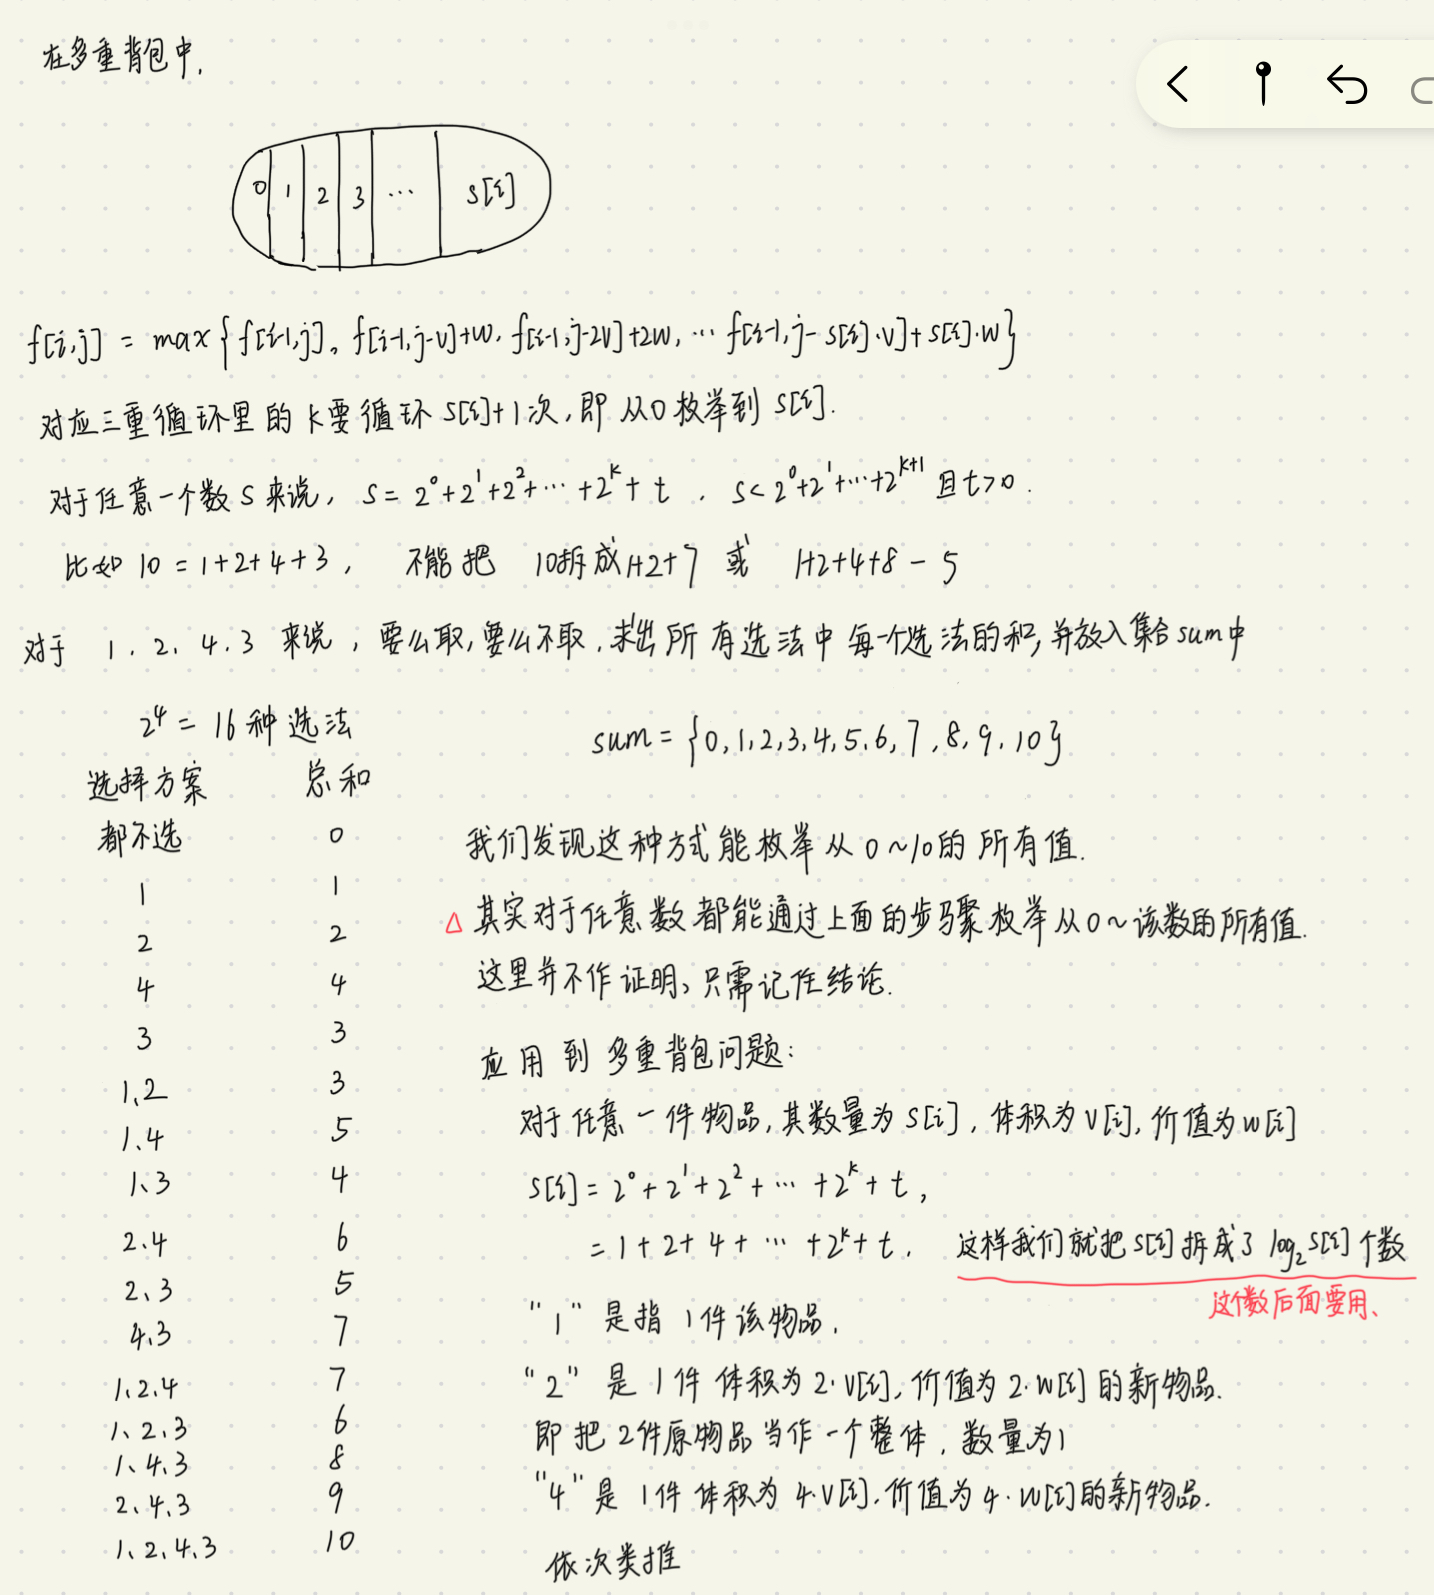 在多重背包中,
0 1 2 3 … s[i]
f[i,j] = max{f[i-1,j], f[i-1,j-v]+w, f[i-1,j-2v]+2w, … f[i-1,j-s[i]·v]+s[i]·w}
对应三重循环里的 k要循环 s[i]+1次,即 从0枚举到 s[i].
对于任意一个数 s 来说, s = 2⁰+2¹+2²+…+2ᵏ+t , s< 2⁰+2¹+…+2ᵏ⁺¹ 且t>0.
比如 10 = 1+2+4+3, 不能把 10拆成1+2+7 或 1+2+4+8-5
对于 1、2、4、3 来说,要么取,要么不取,求出所有选法中每一个选法的和,并放入集合sum中
2⁴ = 16种选法
sum = {0,1,2,3,4,5,6,7,8,9,10}
选择方案 总和
都不选 0
1 1
2 2
4 4
3 3
1、2 3
1、4 5
1、3 4
2、4 6
2、3 5
4、3 7
1、2、4 7
1、2、3 6
1、4、3 8
2、4、3 9
1、2、4、3 10
我们发现这种方式能枚举从0~10的所有值.
△ 其实对于任意数都能通过上面的步骤枚举从0~该数的所有值.
这里并不作证明,只需记住结论.
应用到多重背包问题:
对于任意一件物品,其数量为s[i],体积为v[i],价值为w[i]
s[i] = 2⁰+2¹+2²+…+2ᵏ+t,
= 1+2+4+…+2ᵏ+t. 这样我们就把s[i]拆成了log₂s[i]个数
这个数后面要用、
"1" 是指 1件该物品.
"2" 是 1件 体积为2·v[i],价值为2·w[i]的新物品.
即把2件原物品当作一个整体,数量为1
"4" 是 1件 体积为4·v[i],价值为4·w[i]的新物品.
依次类推